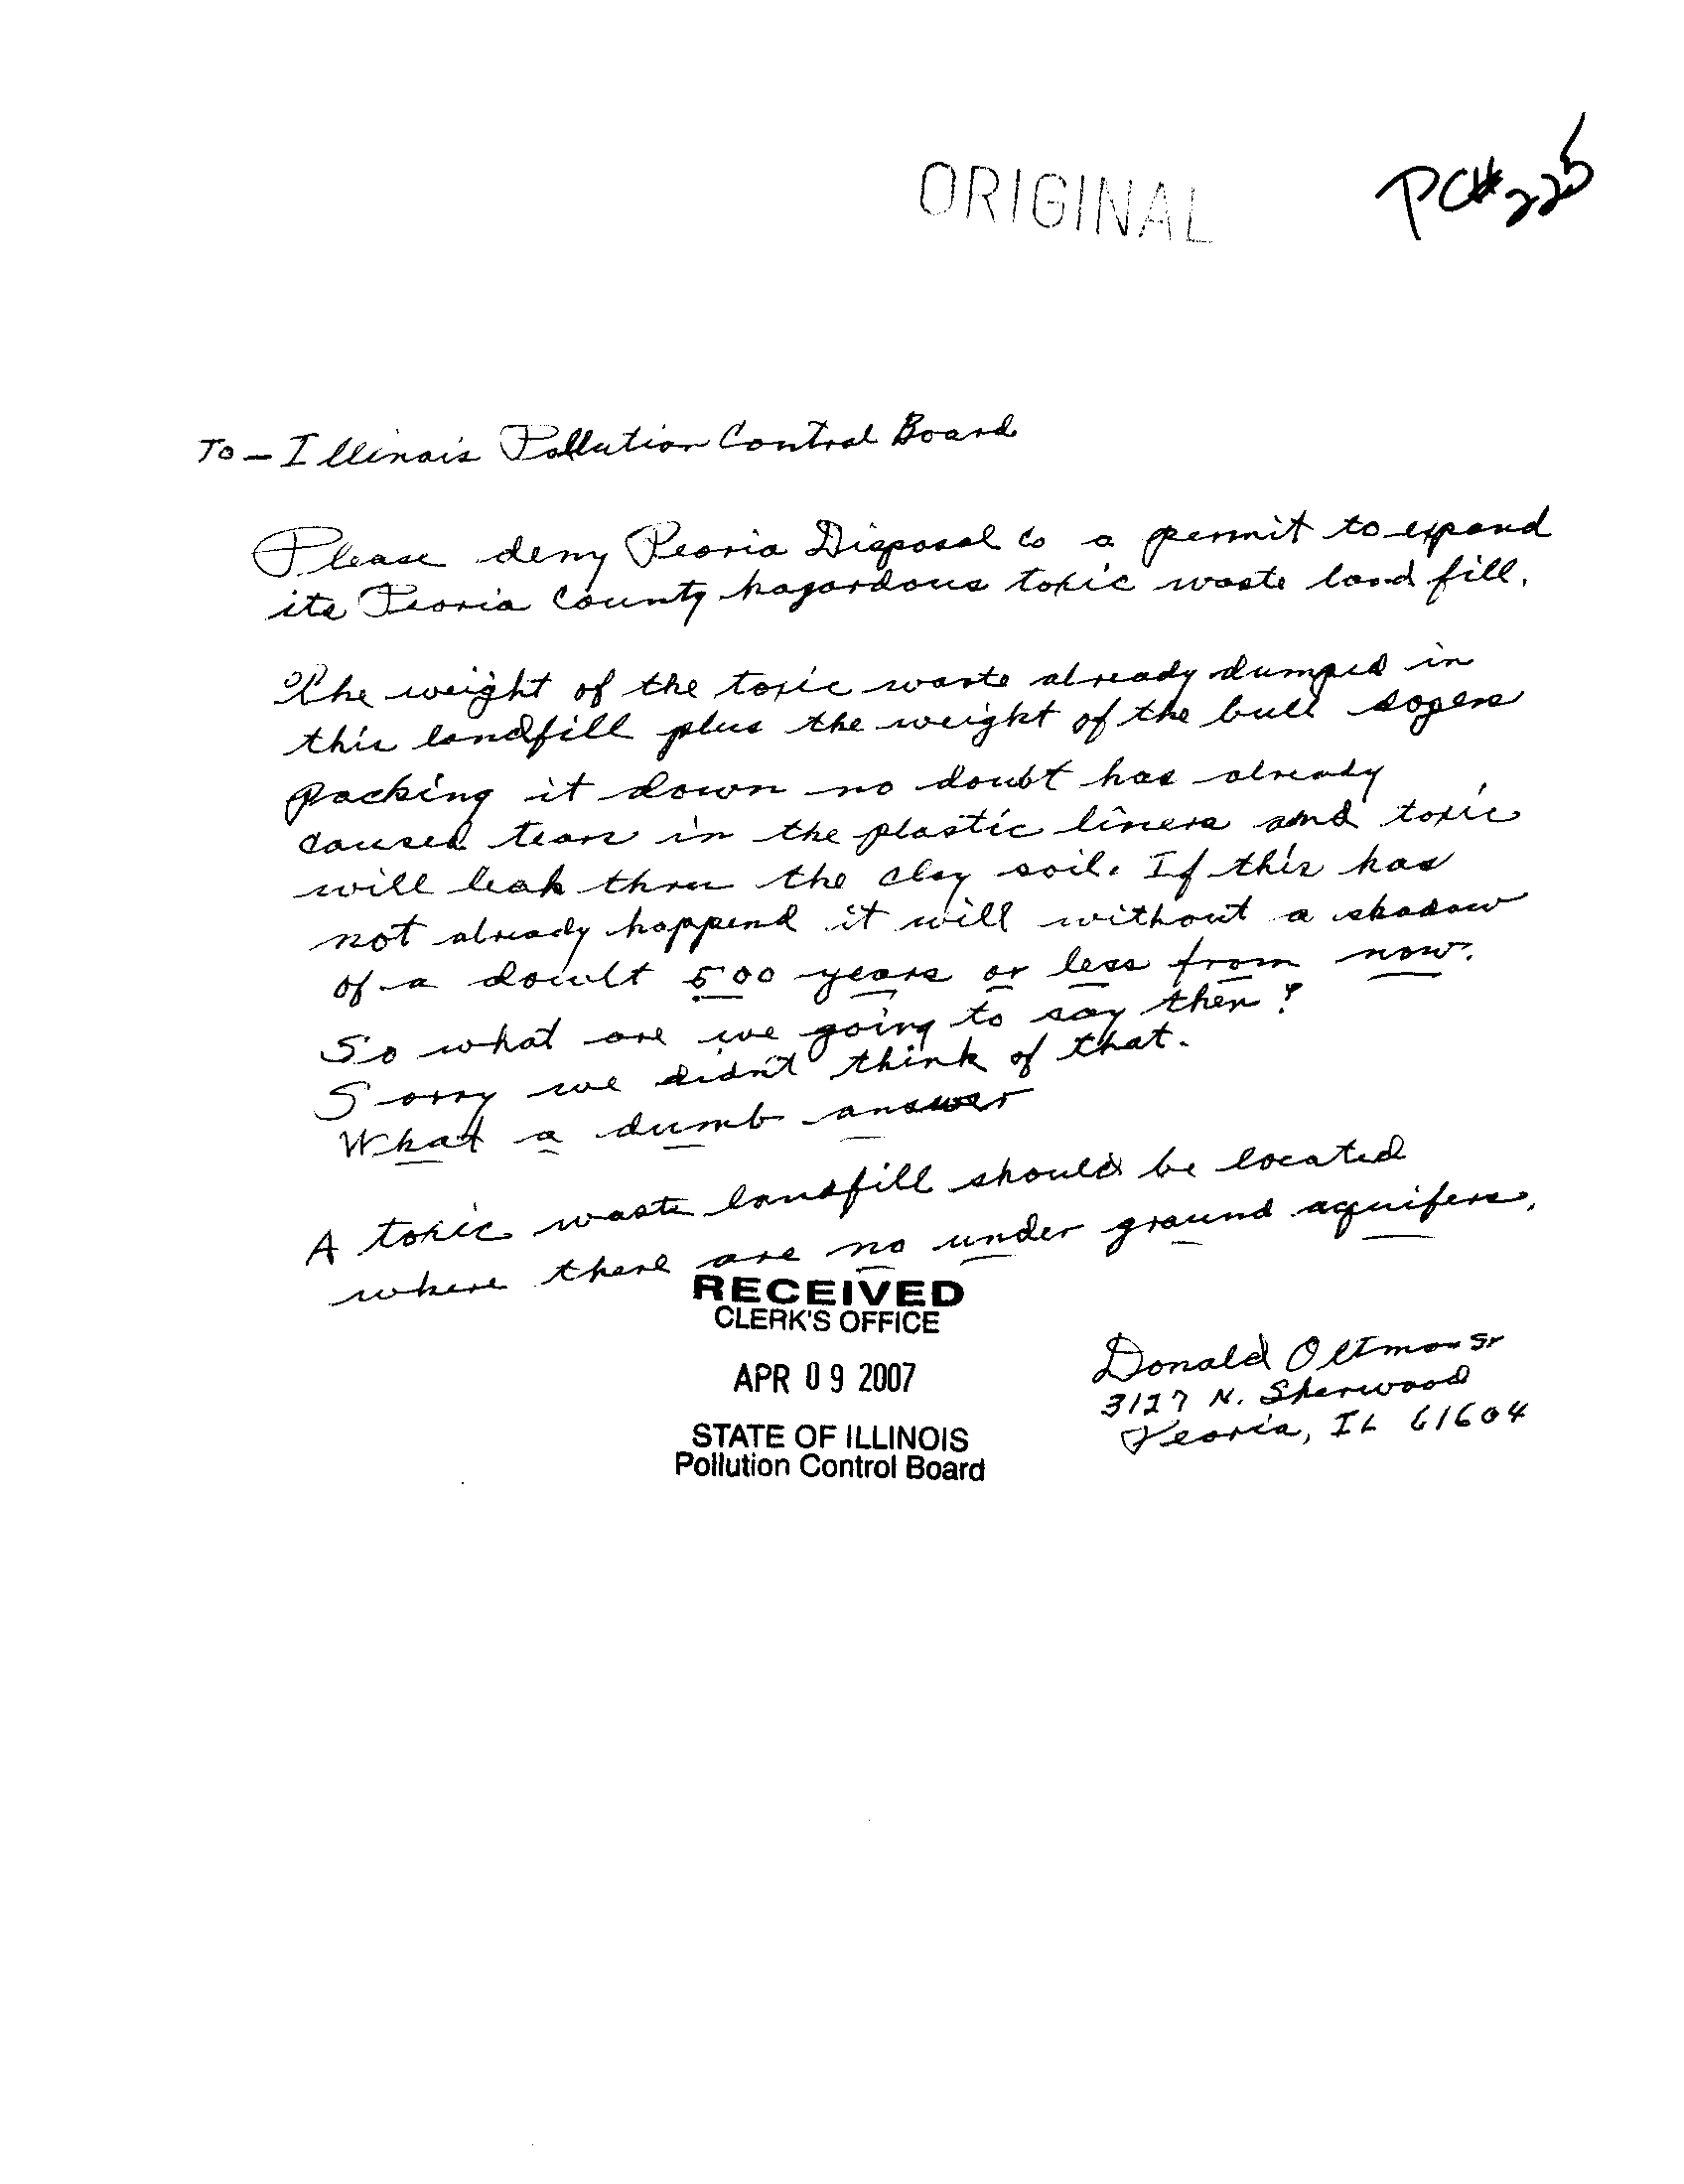 ORIGINAL
PC#225
To - Illinois Pollution Control Board
Please deny Peoria Disposal Co a permit to expand
its Peoria County hazardous toxic waste land fill.
The weight of the toxic waste already dumped in
this landfill plus the weight of the bull dozers
packing it down no doubt has already
caused tears in the plastic liners and toxic
will leak thru the clay soil. If this has
not already happend it will without a shadow
of a doult 500 years or less from now.
So what are we going to say then?
Sorry we didn't think of that.
What a dumb answer
A toxic waste landfill should be located
where there are no under ground aquifers.
RECEIVED
CLERK'S OFFICE
APR 09 2007
STATE OF ILLINOIS
Pollution Control Board
Donald Oltman Sr
3127 N. Sherwood
Peoria, IL 61604